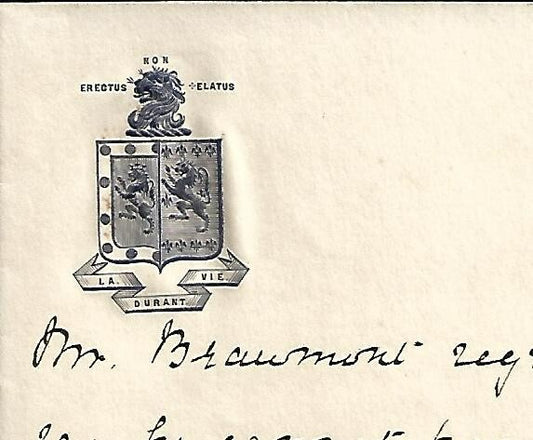 NON
ERECTUS ELATUS
LA. VIE.
DURANT
Mr. Beaumont regr